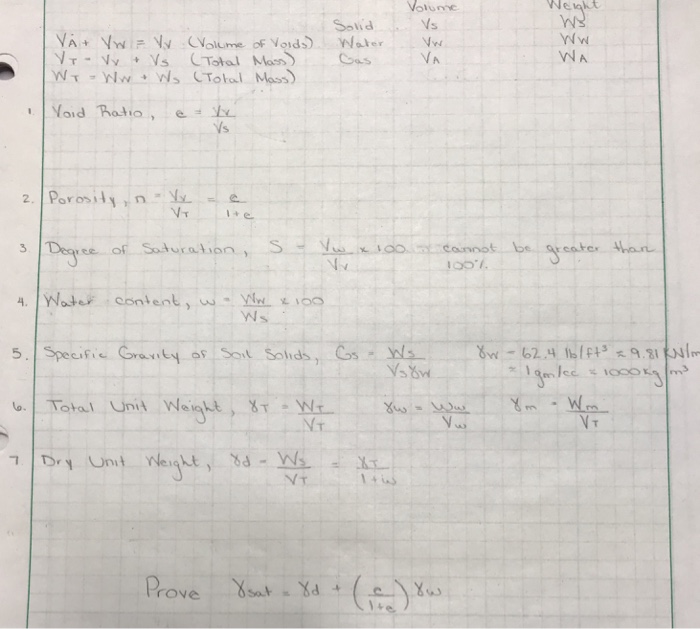 Volume Weight
Solid Vs Ws
VA + Vw = Vv (Volume of Voids) Water Vw Ww
VT = Vv + Vs (Total Mass) Gas VA WA
WT = Ww + Ws (Total Mass)
1. Void Ratio, e = Vv/Vs
2. Porosity, n = Vv/VT = e/1+e
3 Degree of Saturation, S = Vw/Vv x 100 = cannot be greater than 100%.
4. Water content, w = Ww/Ws x 100
5. Specific Gravity of Soil Solids, Gs = Ws/Vsγw γw = 62.4 lb/ft³ ≈ 9.81 kN/m
= 1gm/cc = 1000kg/m³
6. Total Unit Weight, γT = WT/VT γw = Ww/Vw γm = Wm/VT
7 Dry Unit Weight, γd = Ws/VT = γT/1+w
Prove γsat = γd + (e/1+e) γw